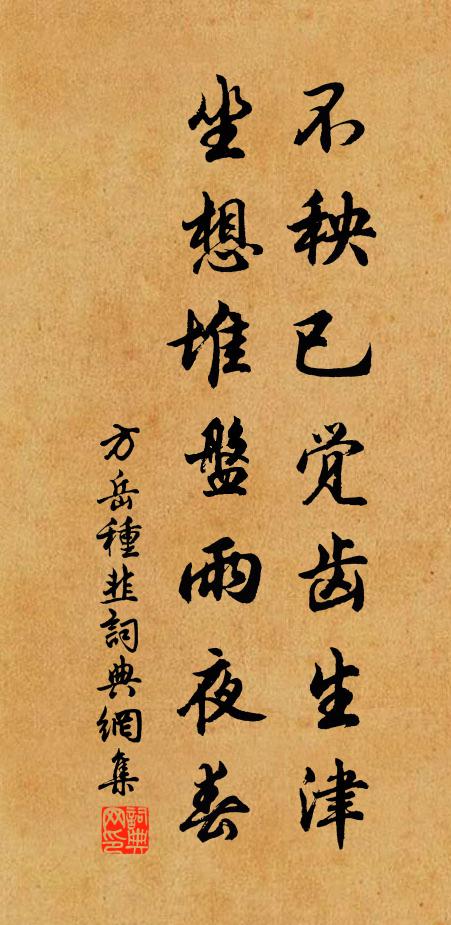 不秧已觉齿生津
坐想堆盤雨夜春
方岳種韭詞典網集
詞典网印